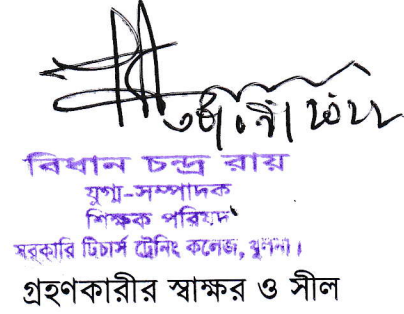 বিধান চন্দ্র রায়
যুগ্ম-সম্পাদক
শিক্ষক পরিষদ
সরকারি টিচার্স ট্রেনিং কলেজ, খুলনা।
গ্রহণকারীর স্বাক্ষর ও সীল